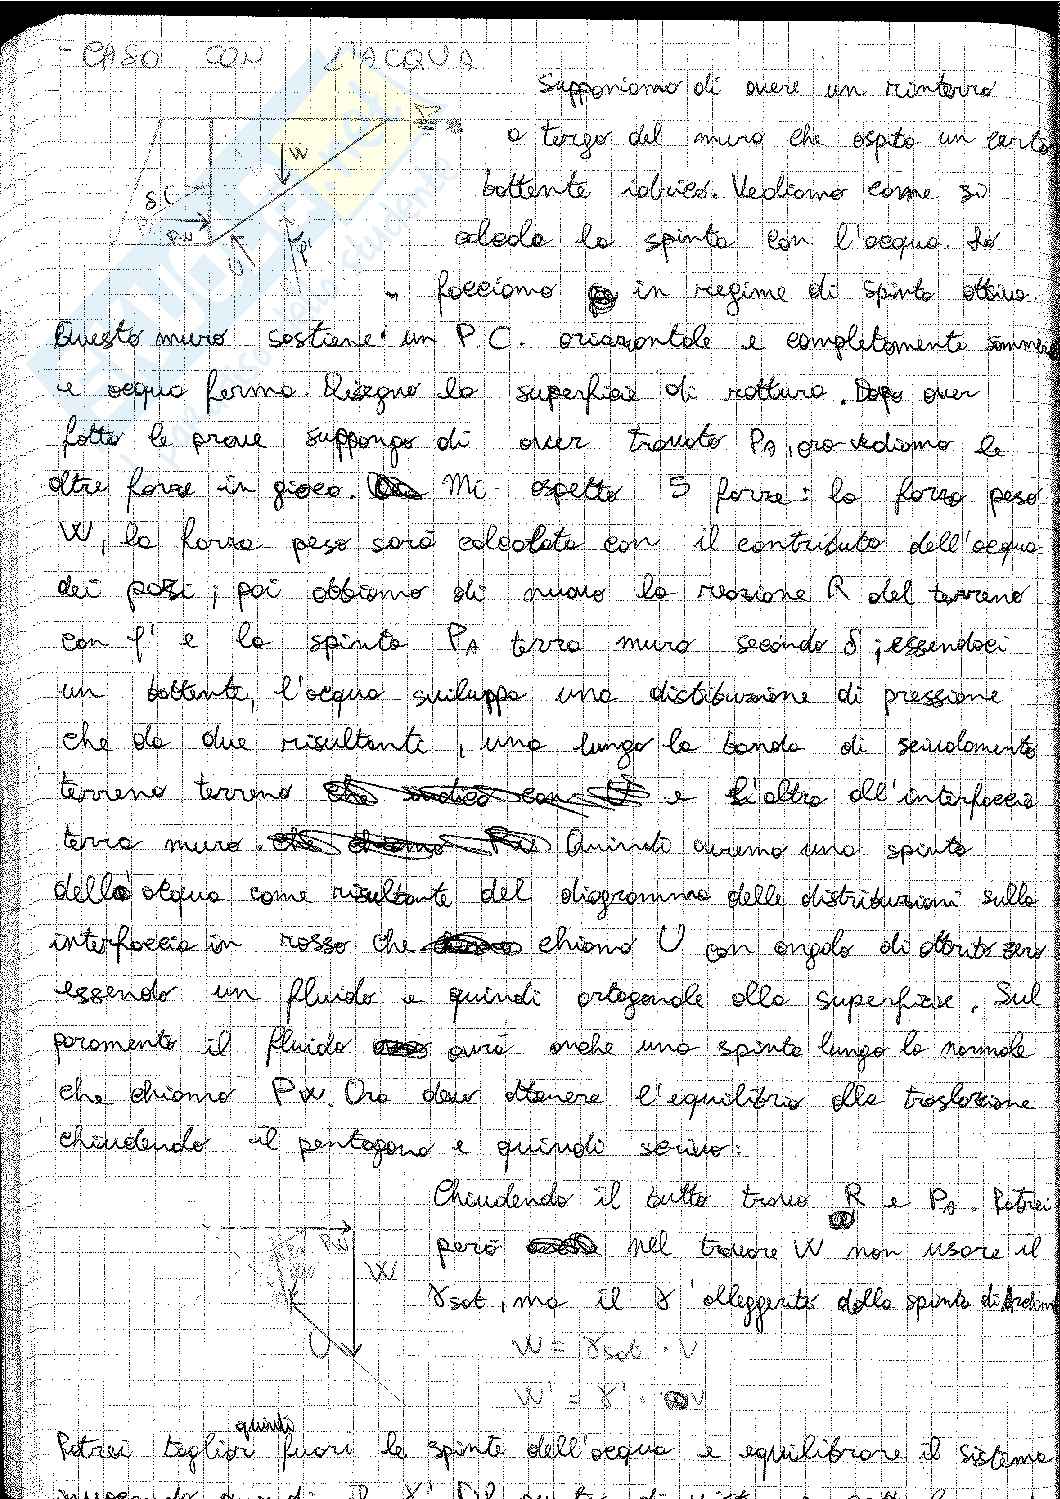 - CASO CON L'ACQUA
Supponiamo di avere un rinterro
a tergo del muro che ospita un certo
battente idrico. Vediamo come si
calcola la spinta con l'acqua. Lo
facciamo in regime di spinta attiva.
W
δ
PW
U
φ'
Questo muro sostiene un P.C. orizzontale e completamente
e acqua ferma. Disegno la superficie di rottura. Dopo aver
fatto le prove suppongo di aver trovato PA, ora vediamo le
altre forze in gioco. Mi aspetto 5 forze: la forza peso
W, la forza peso sarà calcolata con il contributo dell'acqua
dei pori; poi abbiamo di nuovo la reazione R del terreno
con φ' e la spinta PA terra muro secondo δ; essendoci
un battente, l'acqua sviluppa una distribuzione di pressione
che da due risultanti, una lungo la banda di scivolamento
terreno terreno e l'altra all'interfaccia
terra muro. Quindi avremo una spinta
della acqua come risultante del diagramma delle distribuzioni sulla
interfaccia in rosso che chiamo U con angolo di attrito zero
essendo un fluido e quindi ortogonale alla superficie. Sul
paramento il fluido avrà anche una spinta lungo la normale
che chiamo PW. Ora devo ottenere l'equilibrio alla traslazione
chiudendo il pentagono e quindi scrivo:
PW
W
U
Chiudendo il tutto trovo R e PA. Potrei
però nel trovare W non usare il
γsat, ma il γ' alleggerito dalla spinta di
W = γsat · V
W' = γ' · V
quindi
Potrei tagliar fuori le spinte dell'acqua e equilibrare il sistema